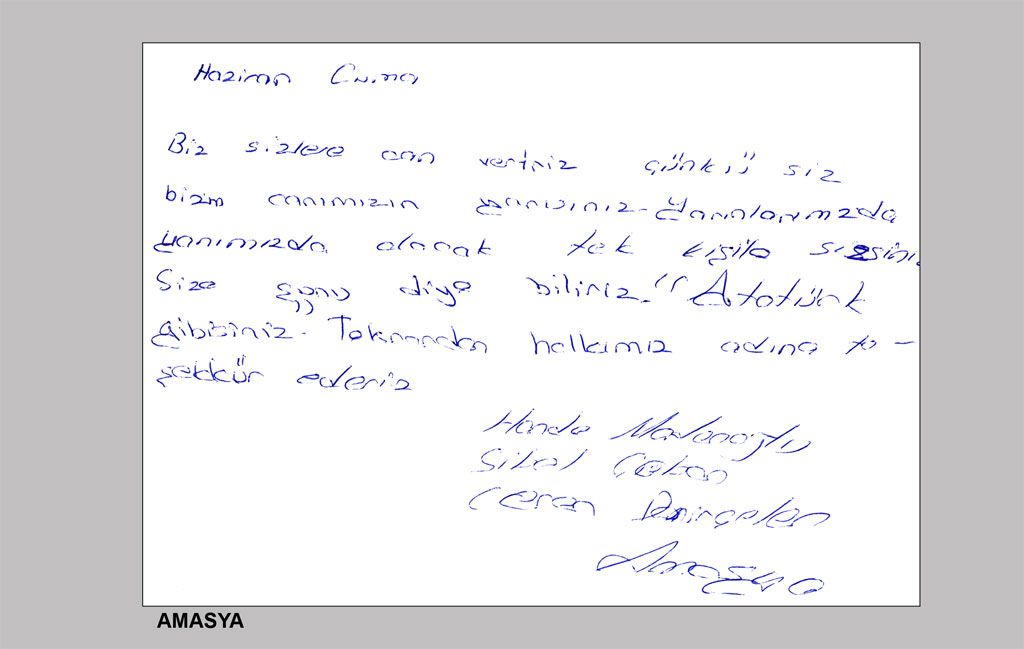 Haziran Cuma
Biz sizlere can veririz çünkü siz
bizm canımızın yarısınız. Yarınlarımızda
yanımızda olacak tek kişile sizsiniz
Size şunu diye biliriz. "Atatürk
gibisiniz". Tekrardan halkımız adına te-
şekkür ederiz
Hande
Sibel Çoban
Ceren Demirçelen
Amasya
AMASYA